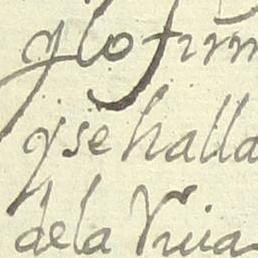 q lo firm
q se halla
de la Viua